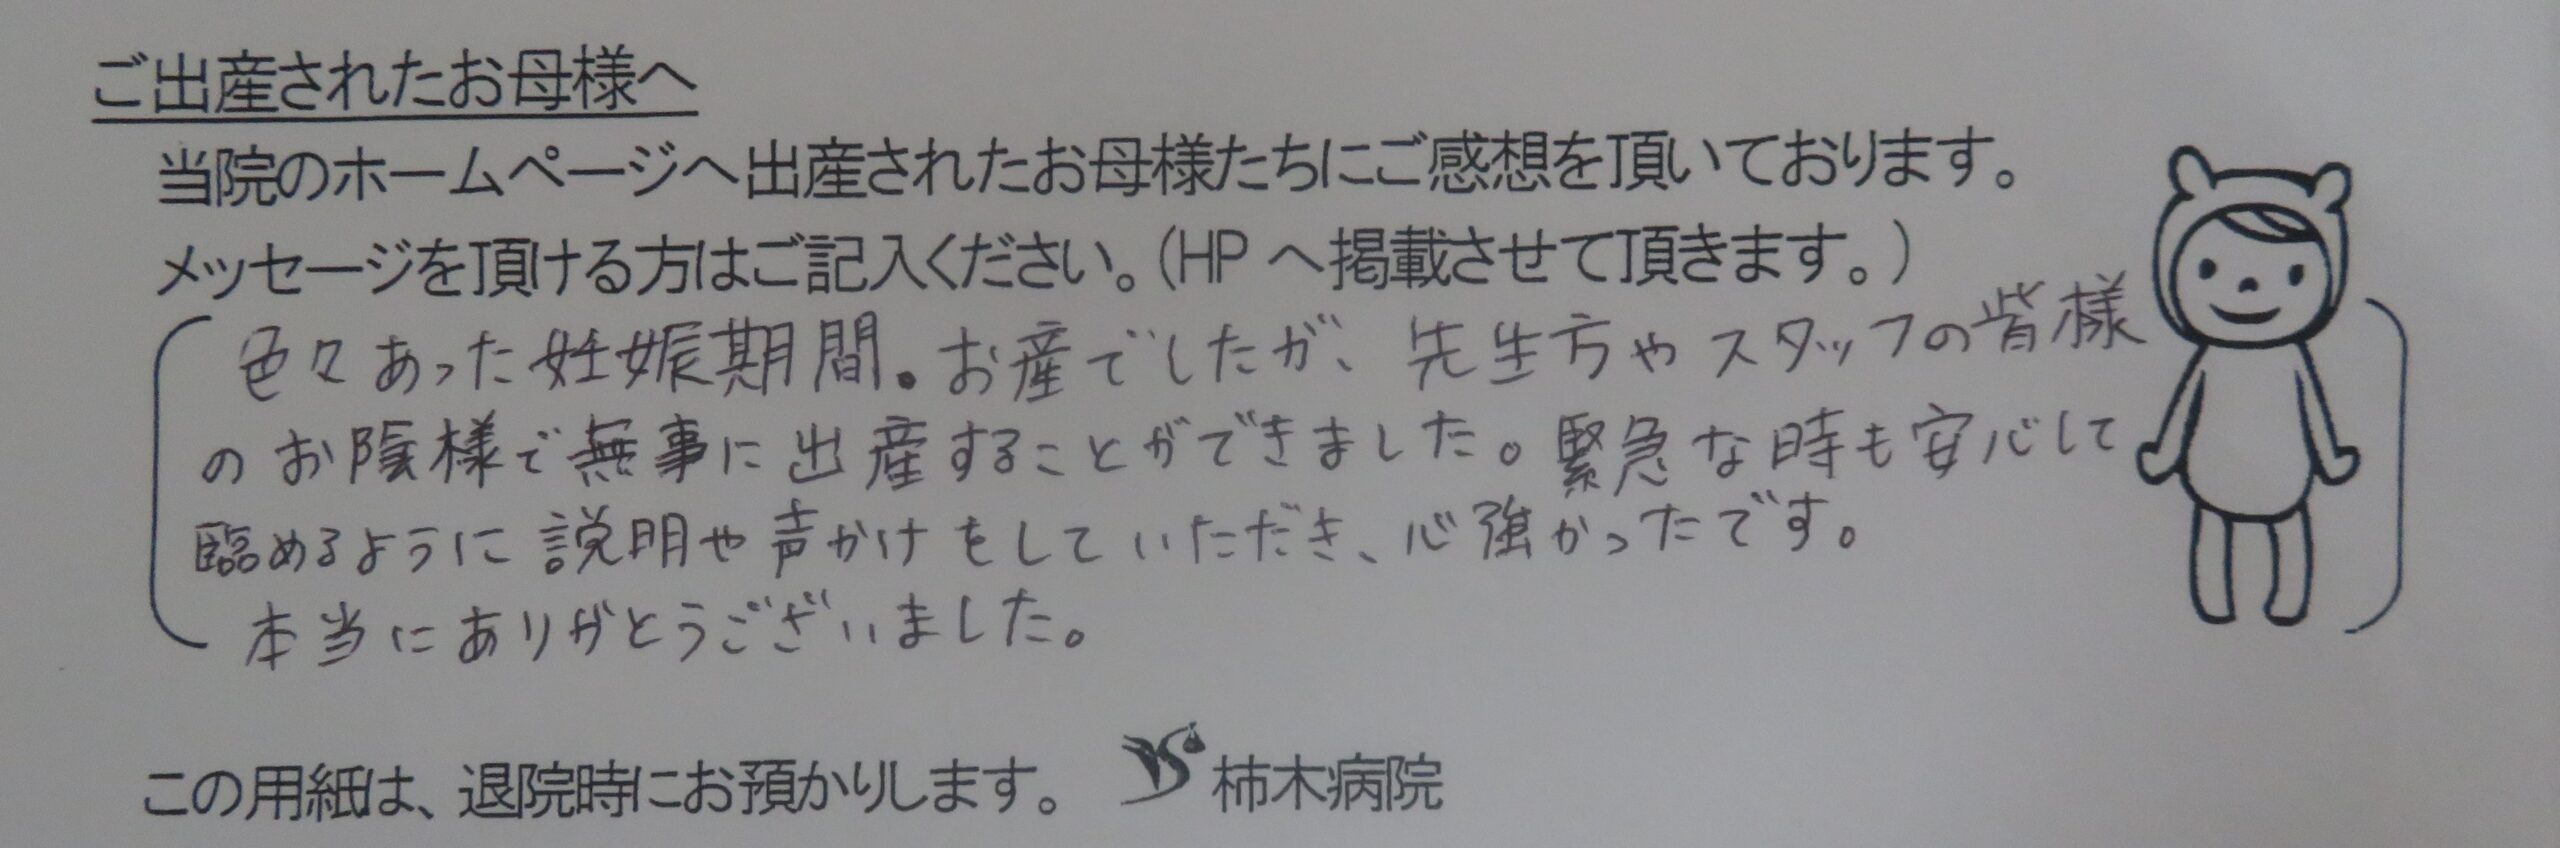 ご出産されたお母様へ
当院のホームページへ出産されたお母様たちにご感想を頂いております。
メッセージを頂ける方はご記入ください。（HPへ掲載させて頂きます。）
色々あった妊娠期間。お産でしたが、先生方やスタッフの皆様
のお陰様で無事に出産することができました。緊急な時も安心して
臨めるように説明や声かけをしていただき、心強かったです。
本当にありがとうございました。
この用紙は、退院時にお預かりします。 柿木病院